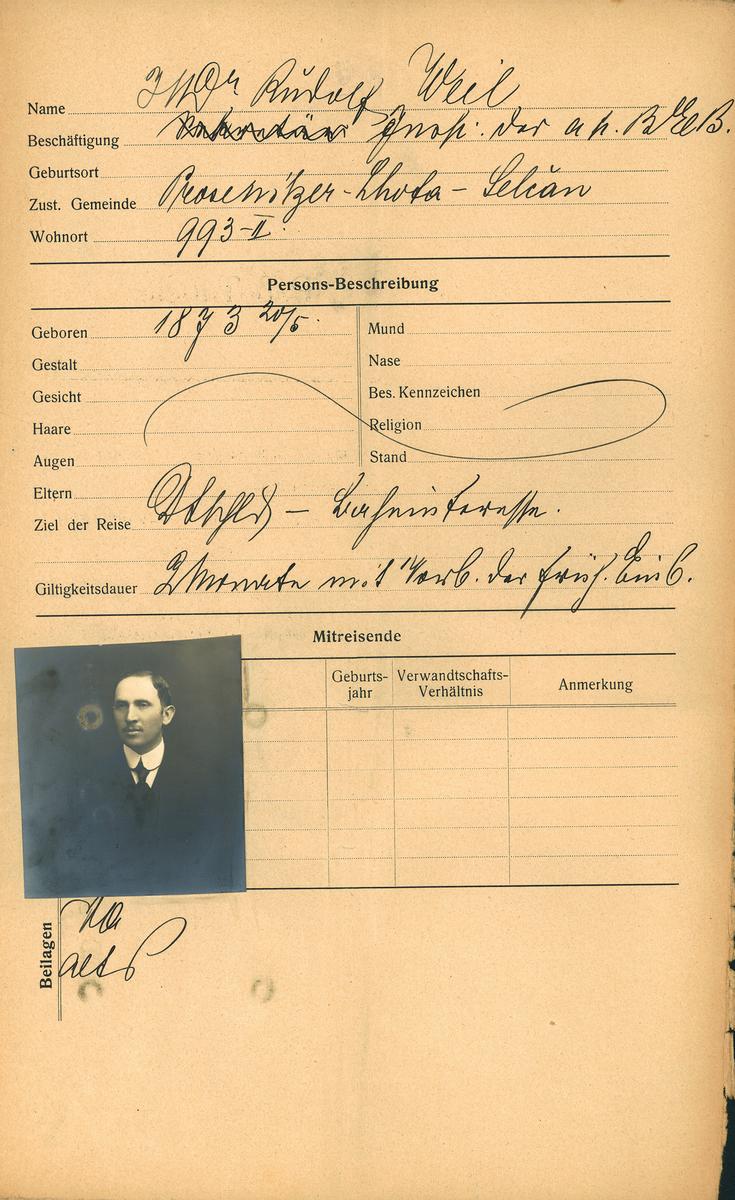 Name JUDr Rudolf Weil
Beschäftigung Sekretär Insp. der a.p. B.E.B.
Geburtsort
Zust. Gemeinde Prosenitzer-Lhota - Selčan
Wohnort 993-II.
Persons-Beschreibung
Geboren 1873 20/5.
Mund
Gestalt
Nase
Gesicht
Bes. Kennzeichen
Haare
Religion
Augen
Stand
Eltern
Ziel der Reise Dtschld - Bahninteresse.
Giltigkeitsdauer 2 Monate mit Vorb. der früh. Einb.
Mitreisende
Geburts-
jahr
Verwandtschafts-
Verhältnis
Anmerkung
Beilagen